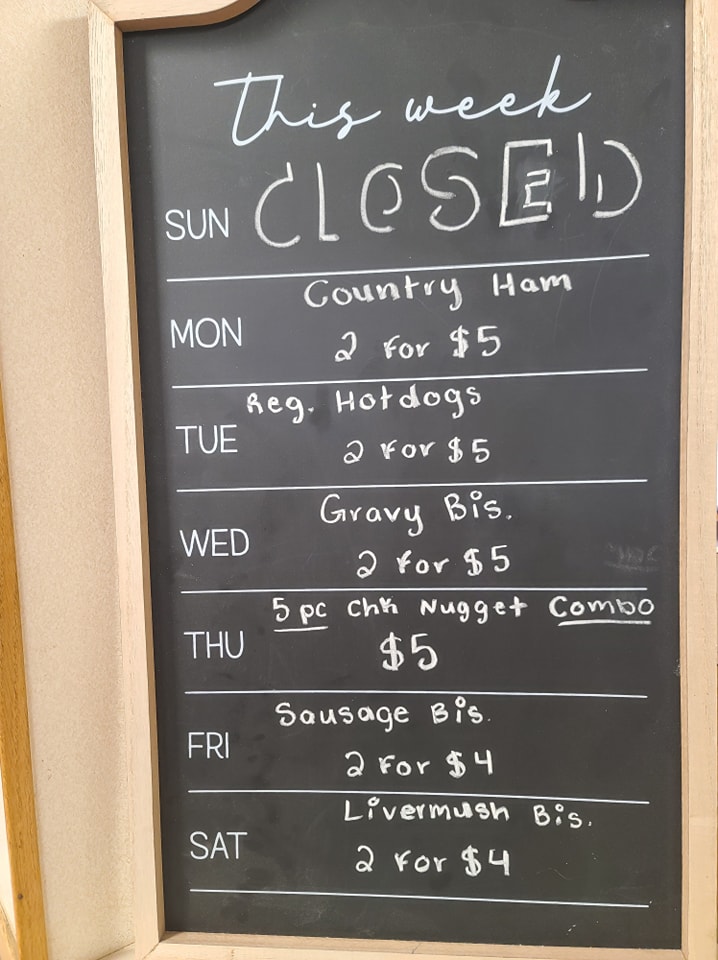 This week
SUN CLOSED
Country Ham
MON 2 for $5
Reg. Hotdogs
TUE 2 for $5
Gravy Bis.
WED 2 for $5
5 pc Chk Nugget Combo
THU $5
Sausage Bis.
FRI 2 for $4
Livermush Bis.
SAT 2 for $4